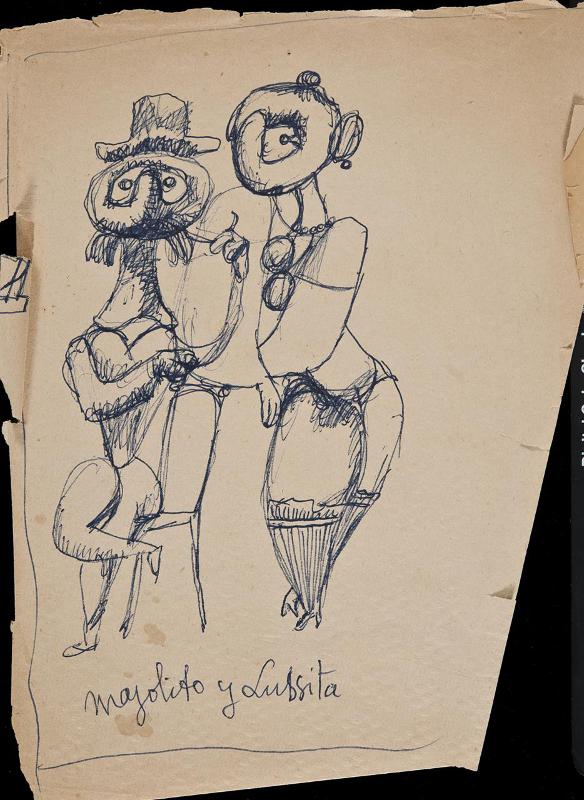 Mayolito y Lussita